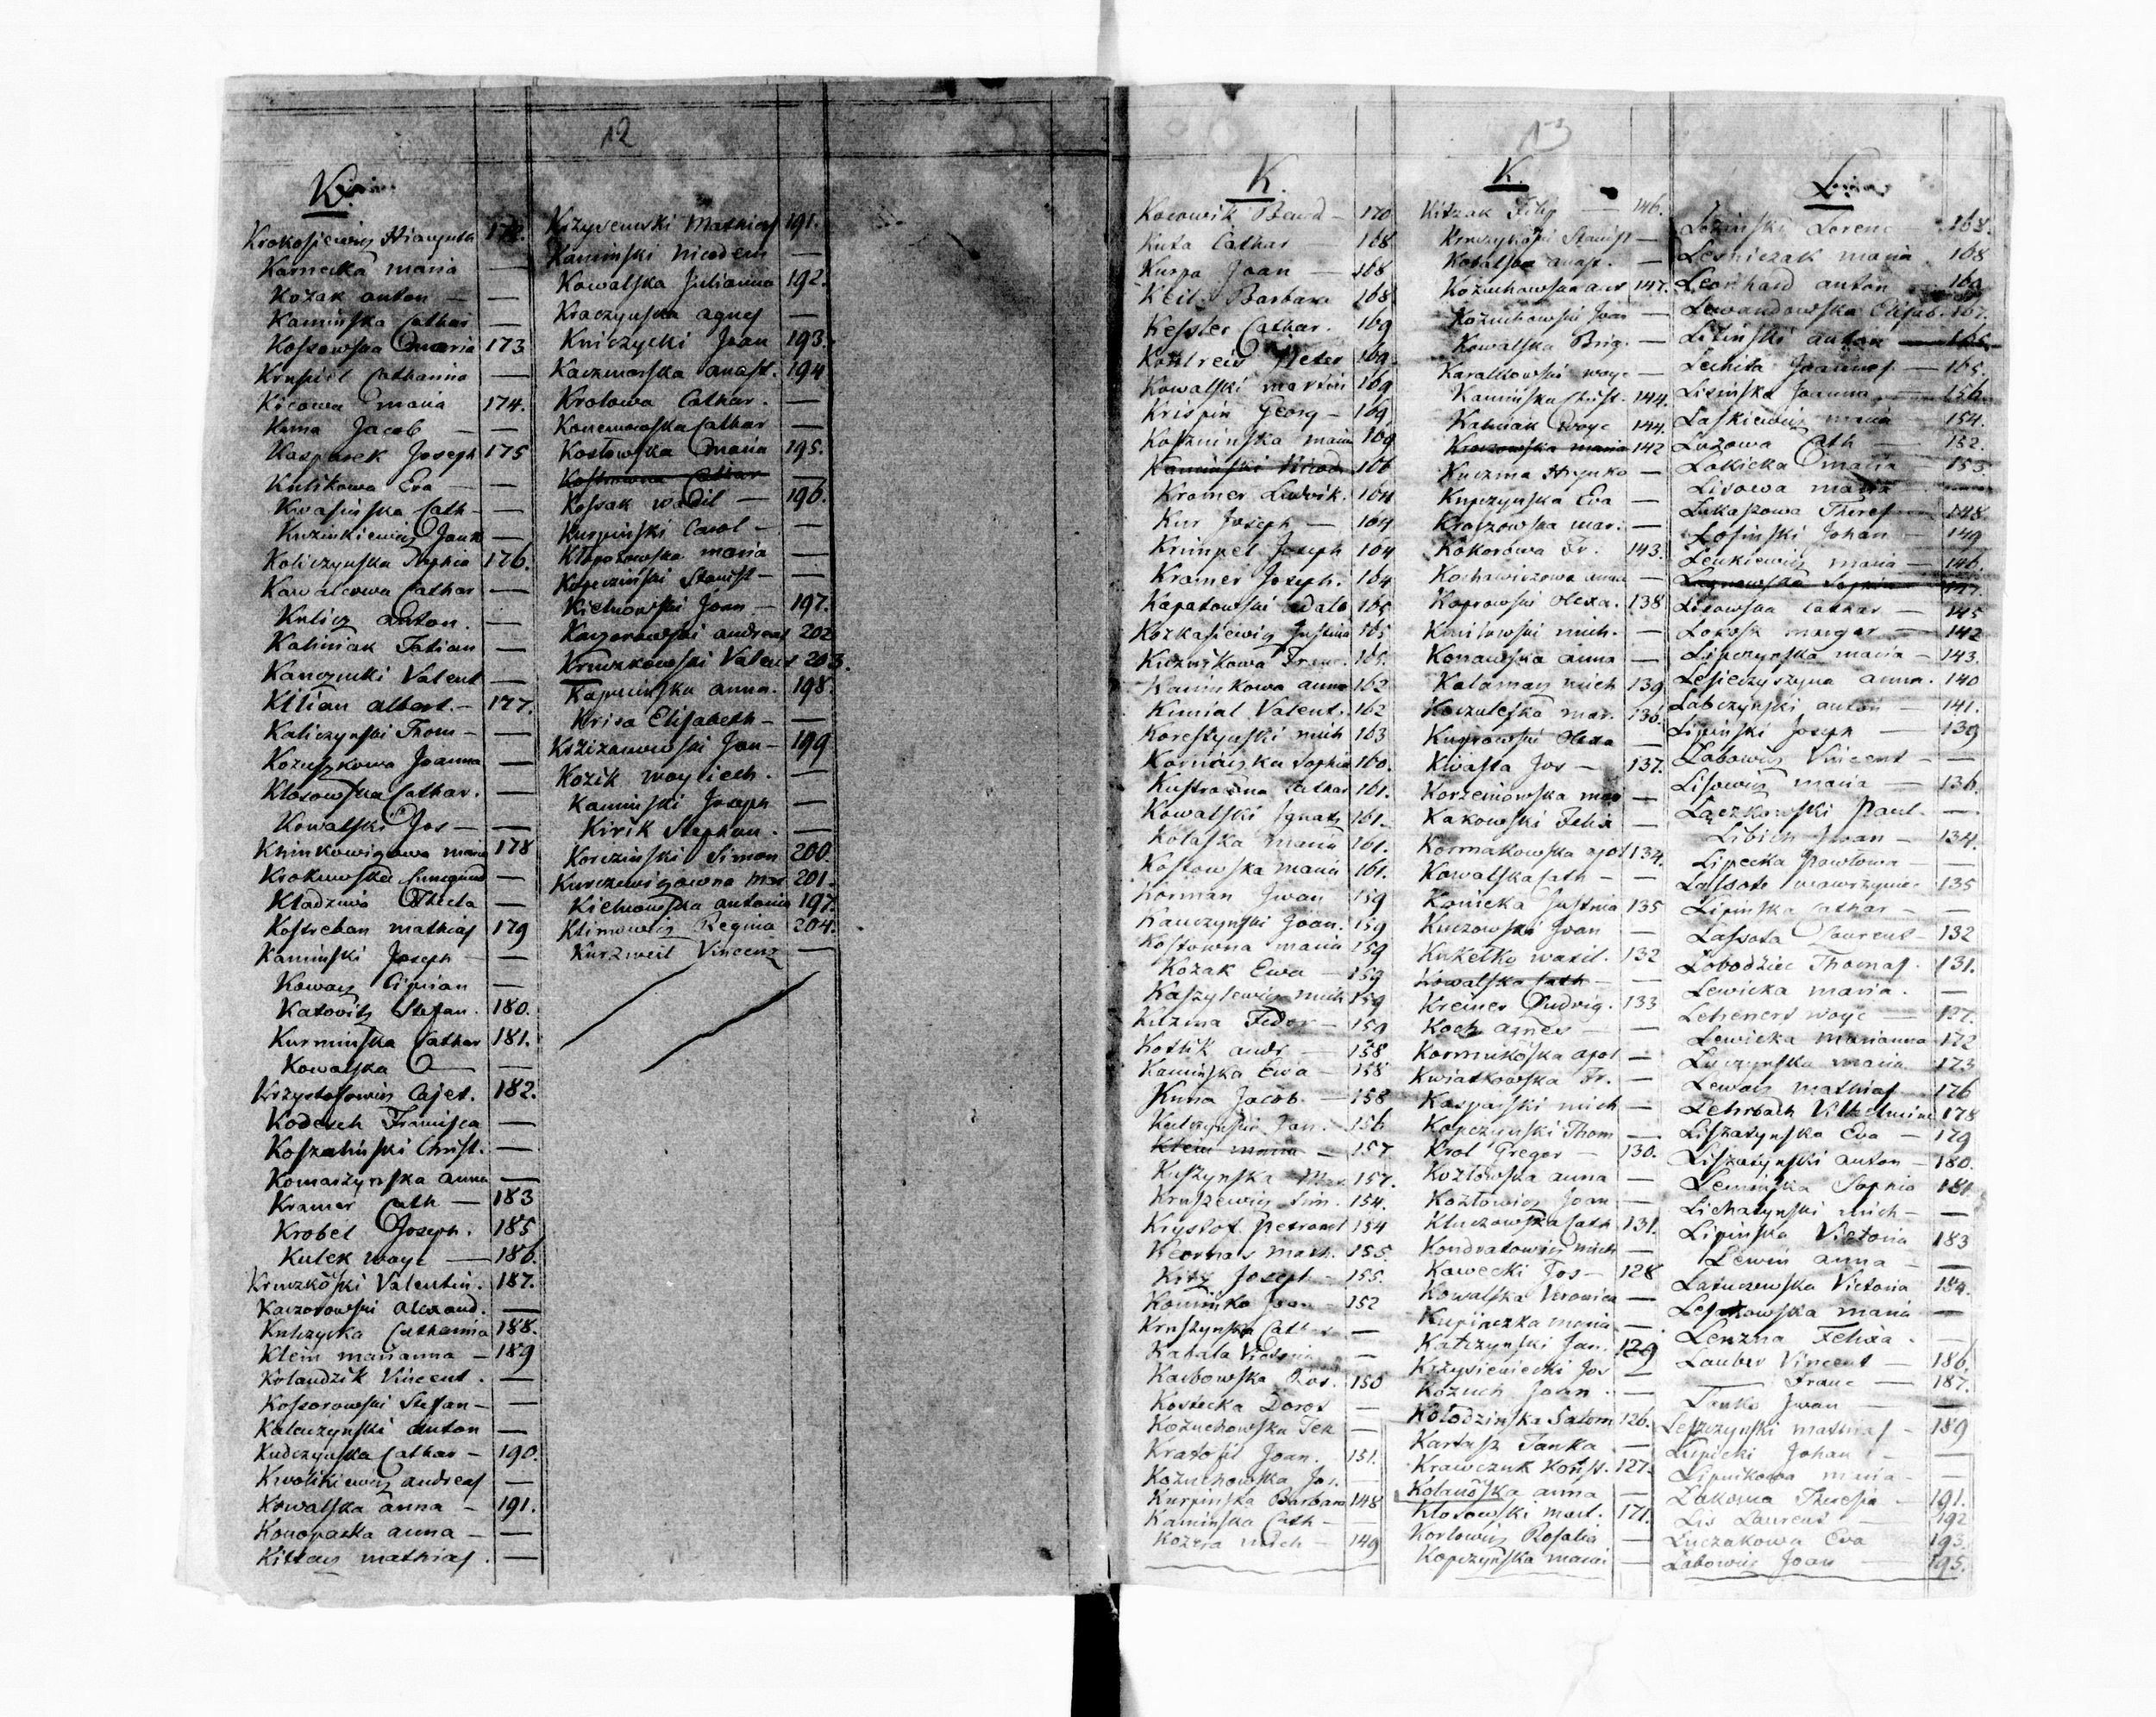 12
K.
Krokosiewicz Hiacynth 172.
Karnecka maria —
Kozak anton — —
Kaminska Cathar —
Kossowska maria 173
Krupiel Catharina —
Kicowa maria 174.
Kuna Jacob — —
Kasparek Joseph 175
Kulikowa Eva — —
Kwasinska Cath — —
Koliczynska Sophia 176.
Kawalcowa Cathar —
Kulicz Anton. —
Kaliniak Tatian —
Kanczucki Valent —
Kilian albert. — 177.
Kaliczynski Thom — —
Kozuszkowa Joanna —
Klosowska Cathar. —
Kowalski Jos — —
Klimkowiczowa maria 178
Krokowska Cunegund —
Kladziwa Thecla —
Kostreban mathias 179
Kaminski Joseph — —
Kowacz Ciprian —
Katovitz Stefan. 180.
Kurminska Cathar 181.
Kowalska — —
Krzystofowicz Cajet. 182.
Kodesch Francisca —
Koszalinski Christ. —
Komarzynska anna —
Kramer Cath — 183
Krobel Joseph. 185
Kulek woyc — 186.
Kruczkoski Valentin. 187.
Kaczorowski alexand. —
Kulczycka Catharina 188.
Klein marianna — 189
Kolandzik Vincent. —
Kossorowski Stefan — —
Kaluczynski anton —
Kudczynska Cathar — 190.
Kwolikiewicz andreas —
Kowalska anna — 191.
Konopacka anna — —
Kittay mathias. —
Krzyszewski Mathias 191.
Kaminski Nicodem —
Kowalska Julianna 192.
Kraczynska agnes —
Kniczycki Joan 193.
Kaczmarska anast. 194
Krolowa Cathar. —
Konemorska Cathar —
Kostowska Maria 195.
Kostrowna Cathar —
Kossak wasil — 196.
Kurpinski Carol — —
Klopotowska maria —
Kopeczinski Stanisl — —
Kielnowski Joan — 197.
Kaczorowski andreas 202
Kruczkowski Valent 203.
Kapucinska anna. 198.
Krisa Elisabeth — —
Krzizanowski Jan — 199
Kozik woyciech. —
Kaminski Joseph —
Kirik Stephan. —
Korczinski Simon 200.
Kurczewiczowna Mar 201.
Kielnowska antonia 197.
Klimowicz Regina 204.
Kurzweil Vincenz —
13
K.
Kuta Cathar — 168
Kurpa Joan — 168
Keil Barbara 168
Kessler Cathar. 169
Kowalski martin 169
Krispin Georg — 169
Kosminska maria 169
Kaminski Nicod 166
Kramer Ludwik. 164
Kur Joseph — 164
Krimpel Joseph 164
Kramer Joseph. 164
Kapatowski adalb 165
Kozkasiewicz Justina 165
Kaminkowa anna 162
Kimial Valent. 162
Koreszynski mich 163
Kowalski Ignatz 161.
Kolaska maria 161.
Kostowska maria 161.
Korman Iwan 159
Kanczynski Joan. 159
Kostowna maria 159
Kozak Ewa — 159
Kaszylewicz mich 159
Kuzma Fedor — 159
Kotlik andr — 158
Kaminska Ewa — 158
Kuna Jacob. — 158
Kulczynski Jan. 156
Klein maria — 157
Kuszynska Mar 157.
Kruszewicz Sim. 154.
Krystof Petronel 154
Kiry Joseph — 155.
Kominko Joan — 152
Kruszynska Cath —
Kabala Victoria —
Karbowska Ros. 150
Kostecka Dorot —
Kozuchowska Tek —
Kratofil Joan. 151.
Kozuchowska Jos. —
Kurpinska Barbara 148
Kaminska Cath — —
Kozera mich — 149
K.
Kitzak Filip — 146.
Kruczykoski Stanisl —
Kobalska anast. —
Kozuchowska anr 147.
Kozuchowski Joan —
Kowalska Brig. —
Karatkowski woyc —
Kaminska Christ. 144.
Kaliniak woyc 144.
Krasowska maria 142
Kuczma Hrynko —
Kupczynska Eva —
Kroczowska mar. —
Kokorowa Fr. 143.
Kochawiczowa anna —
Koprowski Olexa. 138
Kmitowski mich. —
Konawska anna —
Kalaman mich 139
Koczuleska mar. 136.
Kuprowski Olexa —
Kwasta Jos — 137.
Korzeniowska mar —
Kakowski Felix —
Kormakowska apol 134.
Kowalska Cath — —
Konicka Justina 135
Kuczowski Joan —
Kuzelko wasil. 132
Kowalska Cath —
Kremer Ludwig. 133
Koch Agnes — —
Kormukoska apol —
Kwiatkowska Fr. —
Kasparski mich —
Kopczinski Thom —
Krol Gregor — 130.
Kozlowska anna —
Kozlowicz Joan — —
Kluczowska Cath 131.
Kondratowicz mich —
Kawecki Jos — 128
Kowalska Veronica —
Kupinczka maria —
Katczynski Jan. 129
Krzysieniecki Jos —
Kozuch Joan. —
Kolodzinska Salom 126.
Kartusz Janka —
Krawczuk Konst. 127.
Kolanoska anna —
Klosowski mart. 171.
Korlowicz Rosalia —
Kopczynska maria —
L.
Lozinski Lorenc — 168.
Lesniczak maria 168
Leonhard anton 169
Lewandowska Elisab. 167.
Litinski anton 165
Lechita Joannes — 165.
Lisinska Joanna — 156
Laskiewicz maria — 154.
Lozowa Cath — 152.
Lokicka maria 153.
Lisowa maria
Lukaszowa Theres 148
Losinski Johan — 149
Lenkiewicz maria — 146.
Lisowska Cathar — 145
Lipczynska maria — 143.
Lesieczyszyna anna. 140
Labczynski anton — 141.
Lipinski Joseph — 139
Labowicz Vincent — —
Lisowicz maria — 136.
Laczkowski Paul. —
Libich Iwan — 134.
Lipecka Pawlowa — —
Lassota wawrzyniec 135
Lipinska Cathar — —
Lassota Laurent — 132
Lobodziec Thomas. 131.
Lewicka maria. —
Lehenert woyc — 127.
Lewicka marianna 172
Luczynska maria 173
Lewan mathias 176
Lehrbach Vilhelmine 178
Liszatynska Eva — 179
Liszatynski anton — 180.
Leminska Sophia 181
Lichatynski mich — —
Lipinska Victoria 183
Lewin anna — —
Laruszewska Victoria 184.
Lesnkowska maria —
Lenzna Felixa. —
Lauber Vincent — 186.
—— Franc — 187.
Lanko Iwan —
Leszczynski mathias — 189
Lupicki Johan —
Lipnikowa maria — —
Lakoma Theresia — 191.
Lis Laurent — 192
Luczakowa Eva 193.
Labowicz Joan — 195.